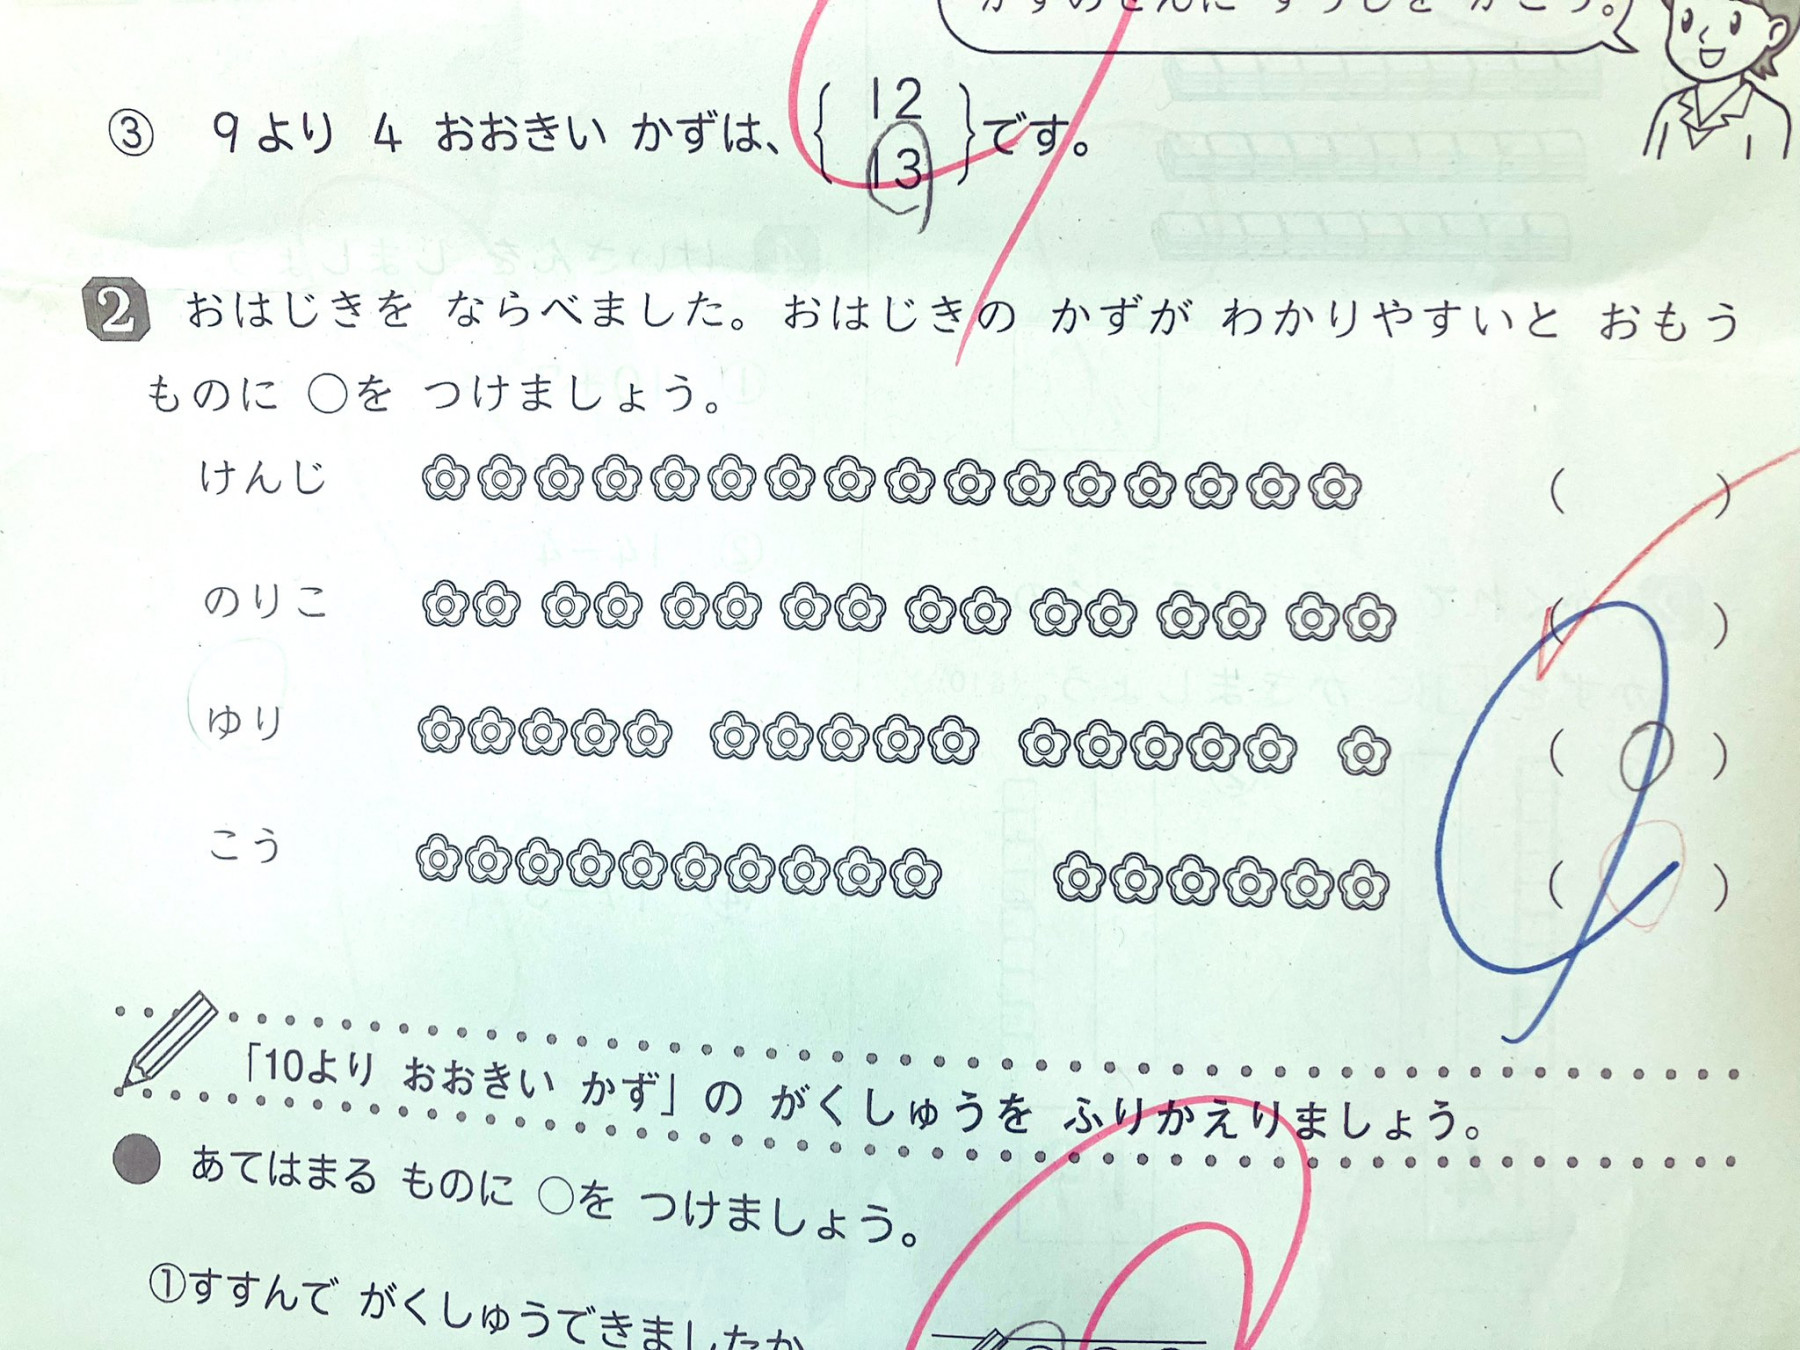 ③ 9より 4 おおきい かずは、{ 12
13 }です。
2 おはじきを ならべました。おはじきの かずが わかりやすいと おもう
ものに ○を つけましょう。
けんじ ( )
のりこ ( )
ゆり ( ○ )
こう ( ○ )
「10より おおきい かず」の がくしゅうを ふりかえりましょう。
● あてはまる ものに ○を つけましょう。
①すすんで がくしゅうできましたか